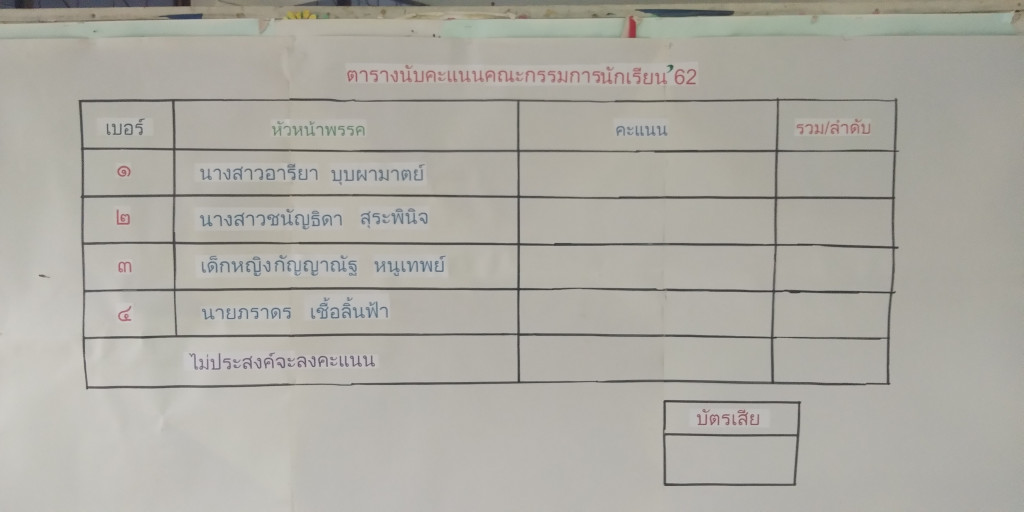 ตารางนับคะแนนคณะกรรมการนักเรียน'62
เบอร์ หัวหน้าพรรค คะแนน รวม/ลำดับ
๑ นางสาวอารียา บุบผามาตย์
๒ นางสาวชนัญธิดา สุระพินิจ
๓ เด็กหญิงกัญญาณัฐ หนูเทพย์
๔ นายภราดร เชื้อลิ้นฟ้า
ไม่ประสงค์จะลงคะแนน
บัตรเสีย